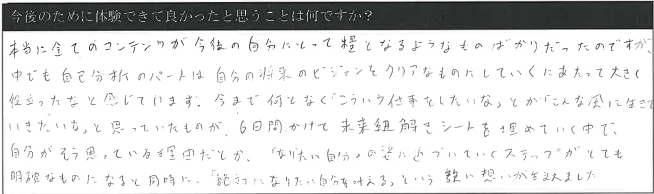 今後のために体験できて良かったと思うことは何ですか？
本当に全てのコンテンツが今後の自分にとって糧となるようなものばかりだったのですが、
中でも自己分析のパートは自分の将来のビジョンをクリアなものにしていくにあたって大きく
役立ったなと感じています。今まで何となく「こういう仕事をしたいな」とか「こんな風に生きて
いきたいな」と思っていたものが、6日間かけて未来紐解きシートを埋めていく中で、
自分がそう思っている理由だとか、「なりたい自分」の姿に近づいていくステップがとても
明確なものになると同時に、「絶対になりたい自分を叶える」という強い想いが生まれました